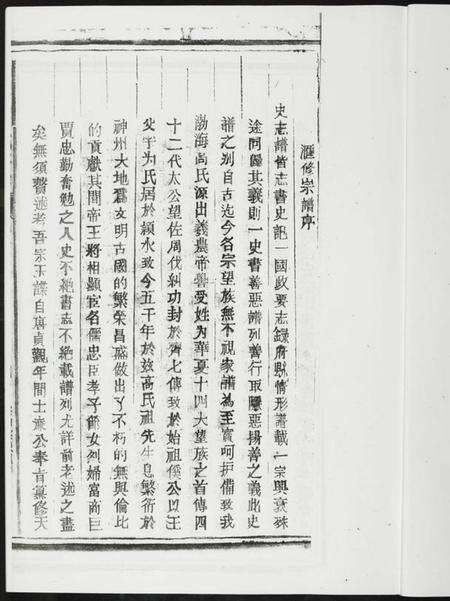 滙修宗譜序
史志譜皆志書史記一國政要志錄府縣情形譜載一宗興衰殊
途同歸其義則一史書善惡譜列善行取隱惡揚善之義此史
譜之別自古迄今名宗望族無不視家譜為至寶呵护備致我
渤海高氏源出羲農帝嚳受姓为華夏十四大望族之首傳四
十二代太公望佐周伐紂功封於齊七傳致於始祖傒公以王
父字为氏居於穎水致今五千年於兹高氏祖先生息繁衍於
神州大地爲文明古國的繁榮昌盛做出了不朽的無與倫比
的貢獻其間帝王將相顯宦名儒忠臣孝子節女烈婦富商巨
賈忠勤奮勉之人史不絶書志不絶載譜列尤詳前老述之盡
矣無須贅述者吾宗玉諜自唐貞觀年間士亷公奉旨纂修天